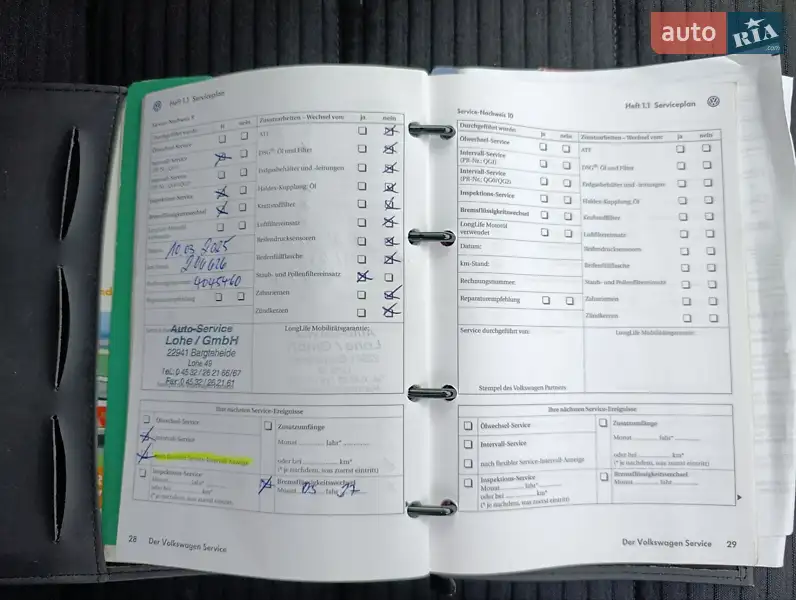 auto RIA
.com
Heft 1.1 Serviceplan
Service-Nachweis 9
Durchgeführt wurde: ja nein
Ölwechsel-Service
Intervall-Service
Inspektions-Service
Bremsflüssigkeitswechsel
10.03.2025
206626
4045460
Reparaturempfehlung
Zusatzarbeiten – Wechsel von: ja nein
ATF
DSG®: Öl und Filter
Erdgasbehälter und -leitungen
Haldex-Kupplung: Öl
Kraftstofffilter
Luftfiltereinsatz
Reifendrucksensoren
Reifenfüllflasche
Staub- und Pollenfiltereinsatz
Zahnriemen
Zündkerzen
Auto-Service
Lohe / GmbH
22941 Bargteheide
Lohe 49
Tel.: 0 45 32 / 26 21 66/67
Fax: 0 45 32 / 26 21 61
LongLife Mobilitätsgarantie:
Ihre nächsten Service-Ereignisse
Ölwechsel-Service
Intervall-Service
nach flexibler Service-Intervall-Anzeige
Inspektions-Service
Monat Jahr*
oder bei km*
(* je nachdem, was zuerst eintritt)
Zusatzumfänge
Monat Jahr*
oder bei km*
(* je nachdem, was zuerst eintritt)
Bremsflüssigkeitswechsel
Monat 03 Jahr 27
28 Der Volkswagen Service
Heft 1.1 Serviceplan
Service-Nachweis 10
Durchgeführt wurde: ja nein
Ölwechsel-Service
Intervall-Service
(PR-Nr.: QG1)
Intervall-Service
(PR-Nr.: QG0/QG2)
Inspektions-Service
Bremsflüssigkeitswechsel
LongLife Motoröl
verwendet
Datum:
km-Stand:
Rechnungsnummer:
Reparaturempfehlung
Zusatzarbeiten – Wechsel von: ja nein
ATF
DSG®: Öl und Filter
Erdgasbehälter und -leitungen
Haldex-Kupplung: Öl
Kraftstofffilter
Luftfiltereinsatz
Reifendrucksensoren
Reifenfüllflasche
Staub- und Pollenfiltereinsatz
Zahnriemen
Zündkerzen
Service durchgeführt von:
LongLife Mobilitätsgarantie:
Stempel des Volkswagen Partners
Ihre nächsten Service-Ereignisse
Ölwechsel-Service
Intervall-Service
nach flexibler Service-Intervall-Anzeige
Inspektions-Service
Monat Jahr*
oder bei km*
(* je nachdem, was zuerst eintritt)
Zusatzumfänge
Monat Jahr*
oder bei km*
(* je nachdem, was zuerst eintritt)
Bremsflüssigkeitswechsel
Monat Jahr
Der Volkswagen Service 29